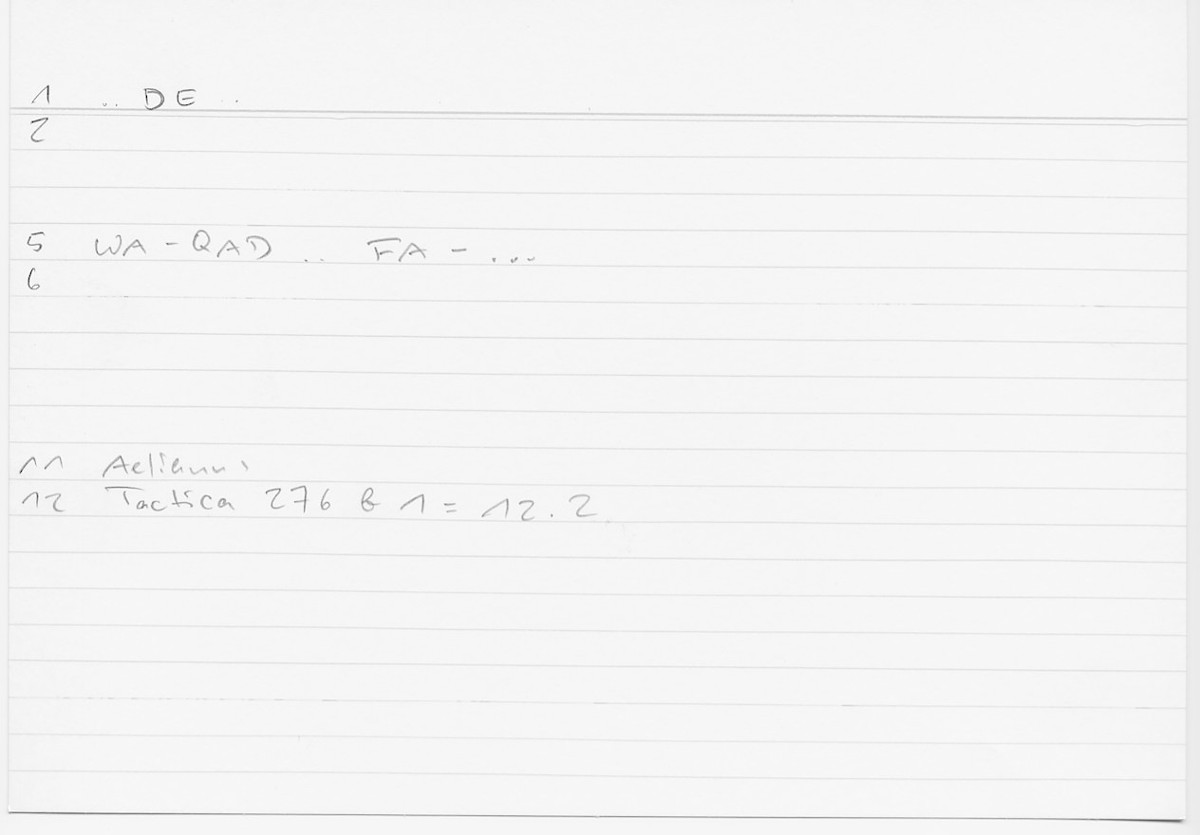 1 .. DE ..
2
5 WA-QAD .. FA-...
6
11 Aelianus
12 Tactica 276 b 1 = 12.2